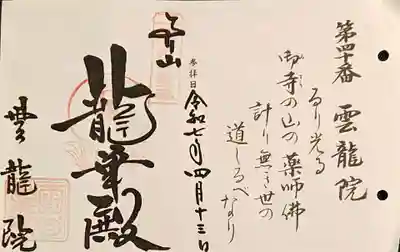 第四十番 雲龍院
るり光る
御寺の山の薬師佛
計り無き世の
道しるべなり
参拝日 令和七年四月十三日
泉山
龍華殿
雲龍院